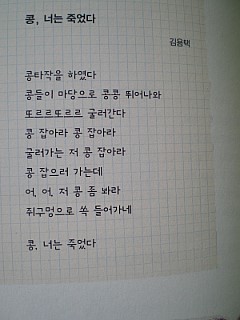 콩, 너는 죽었다
김용택
콩타작을 하였다
콩들이 마당으로 콩콩 뛰어나와
또르르또르르 굴러간다
콩 잡아라 콩 잡아라
굴러가는 저 콩 잡아라
콩 잡으러 가는데
어, 어, 저 콩 좀 봐라
쥐구멍으로 쏙 들어가네
콩, 너는 죽었다